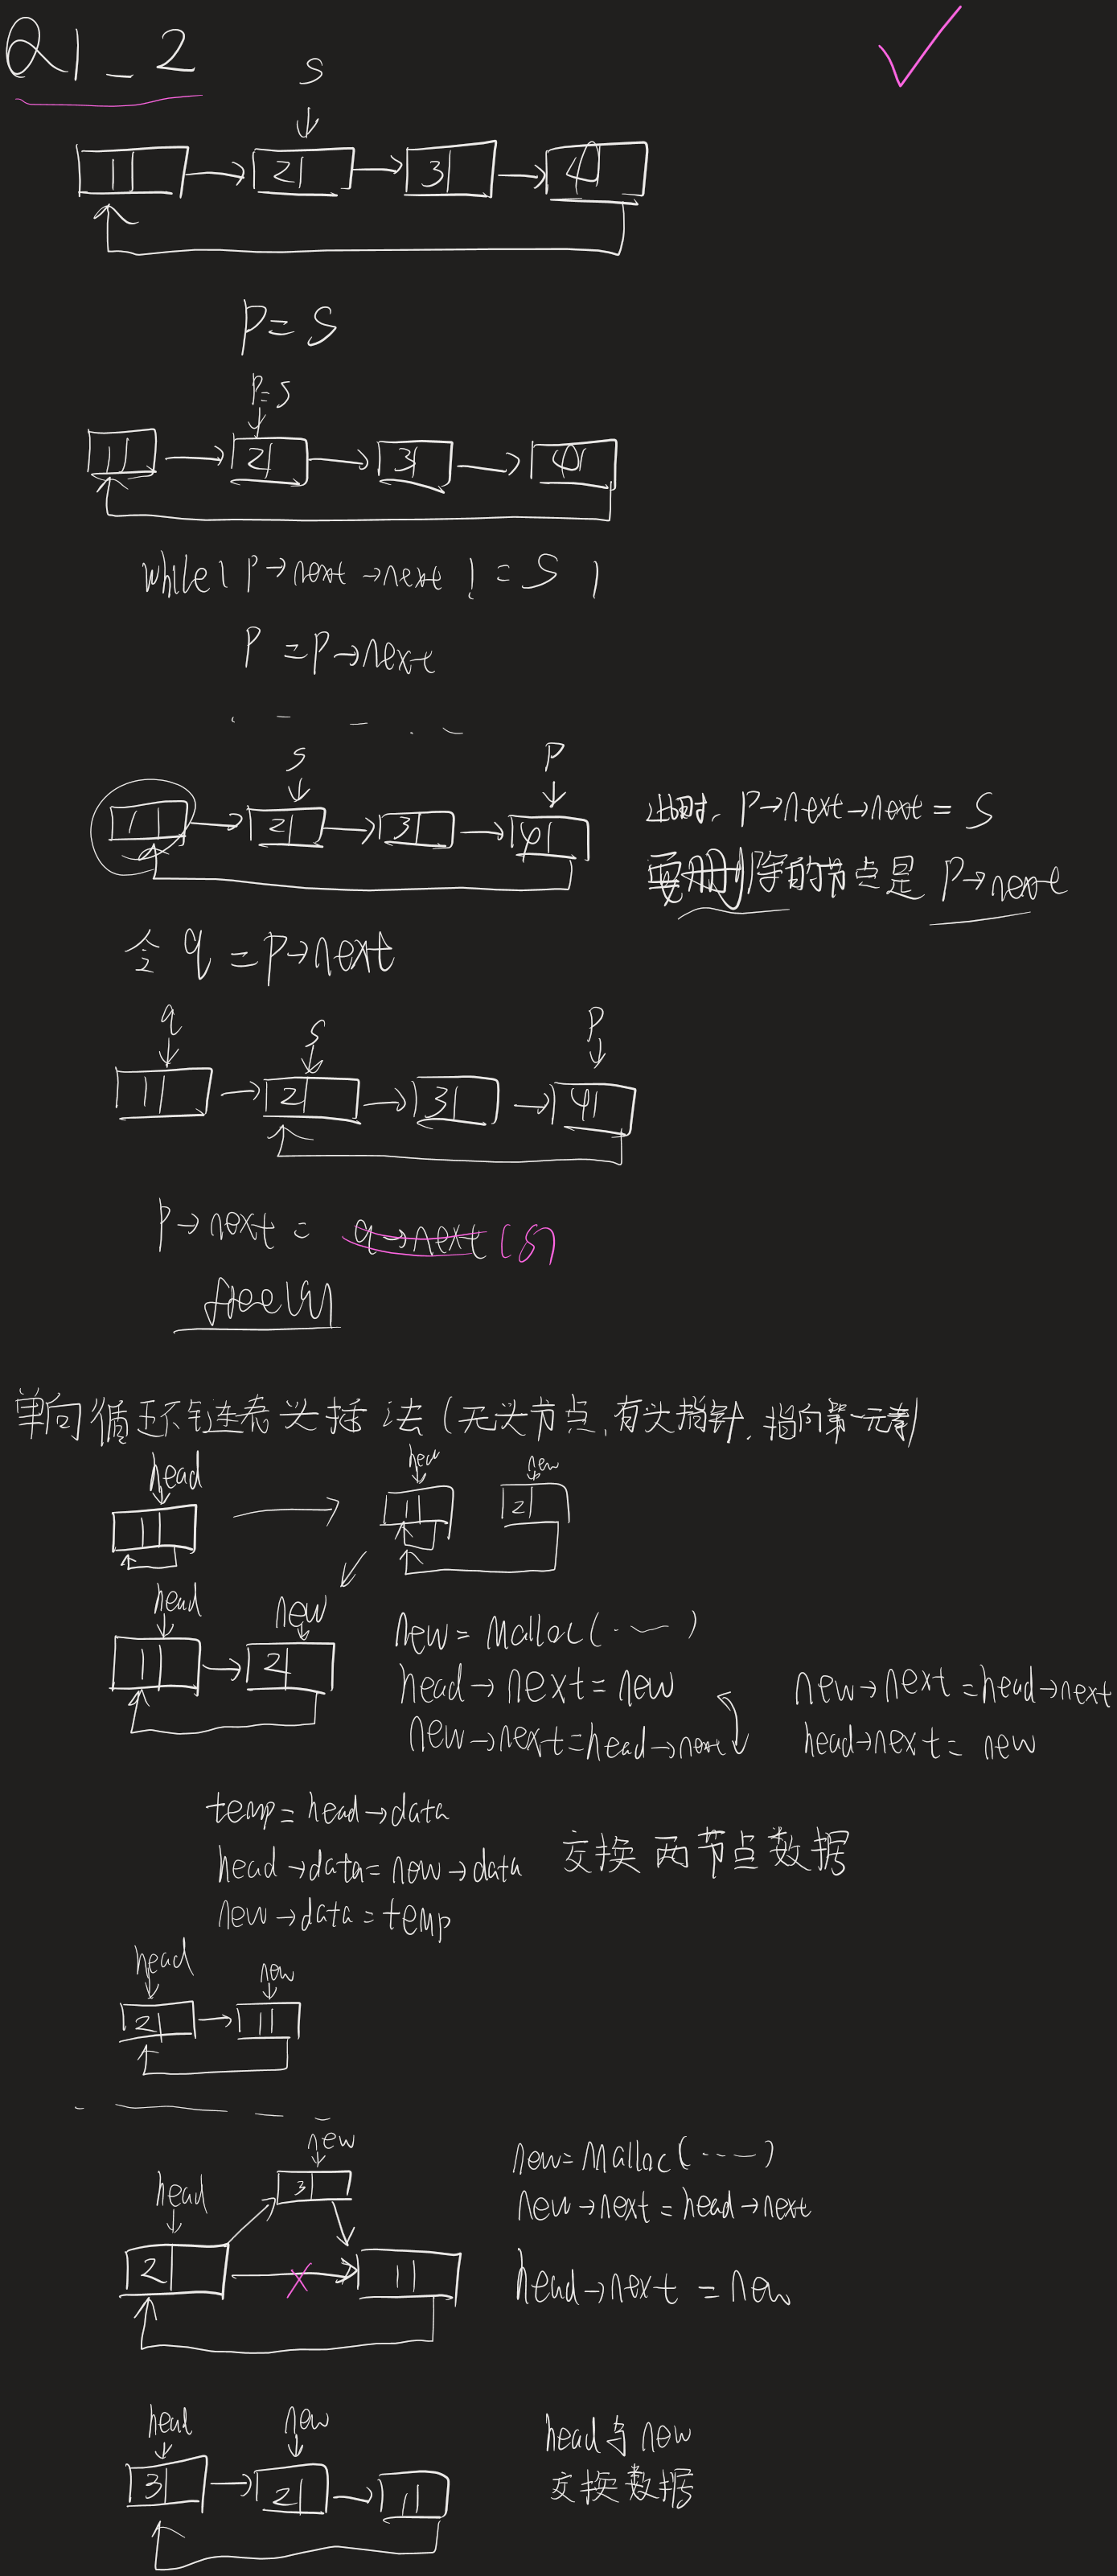 Q1_2
S
1 2 3 4
P=S
P=S
1 2 3 4
while(P→next→next!=S)
P=P→next
S P
1 2 3 4
此时,P→next→next=S
要删除的节点是P→next
令q=P→next
q S P
1 2 3 4
P→next= q→next (S)
free(q)
单向循环链表头插法(无头节点,有头指针,指向第一元素)
head head new
1 1 2
head new
1 2
new=malloc(……)
head→next=new
new→next=head→next
new→next=head→next
head→next=new
temp=head→data
head→data=new→data 交换两节点数据
new→data=temp
head new
2 1
new
3
head
2 1
new=malloc(……)
new→next=head→next
head→next=new
head new
3 2 1
head与new
交换数据